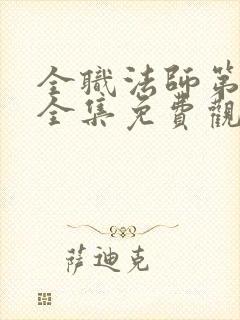 全職法師第
全集免費觀
萨迪克